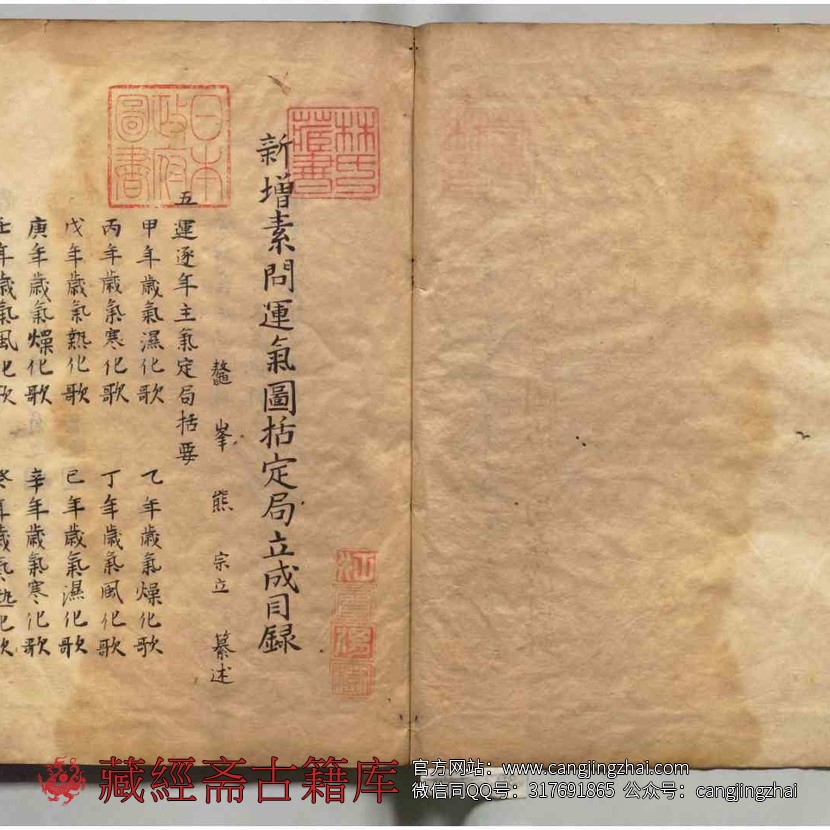 新增素問運氣圖括定局立成目録
鼇峯熊宗立纂述
五運逐年主氣定局括要
甲年歲氣濕化歌 乙年歲氣燥化歌
丙年歲氣寒化歌 丁年歲氣風化歌
戊年歲氣熱化歌 己年歲氣濕化歌
庚年歲氣燥化歌 辛年歲氣寒化歌
壬年歲氣風化歌 癸年歲氣熱化歌
林氏藏書
日本政府圖書
藏經斋古籍库
官方网站：www.cangjingzhai.com
微信同QQ号：317691865 公众号：cangjingzhai